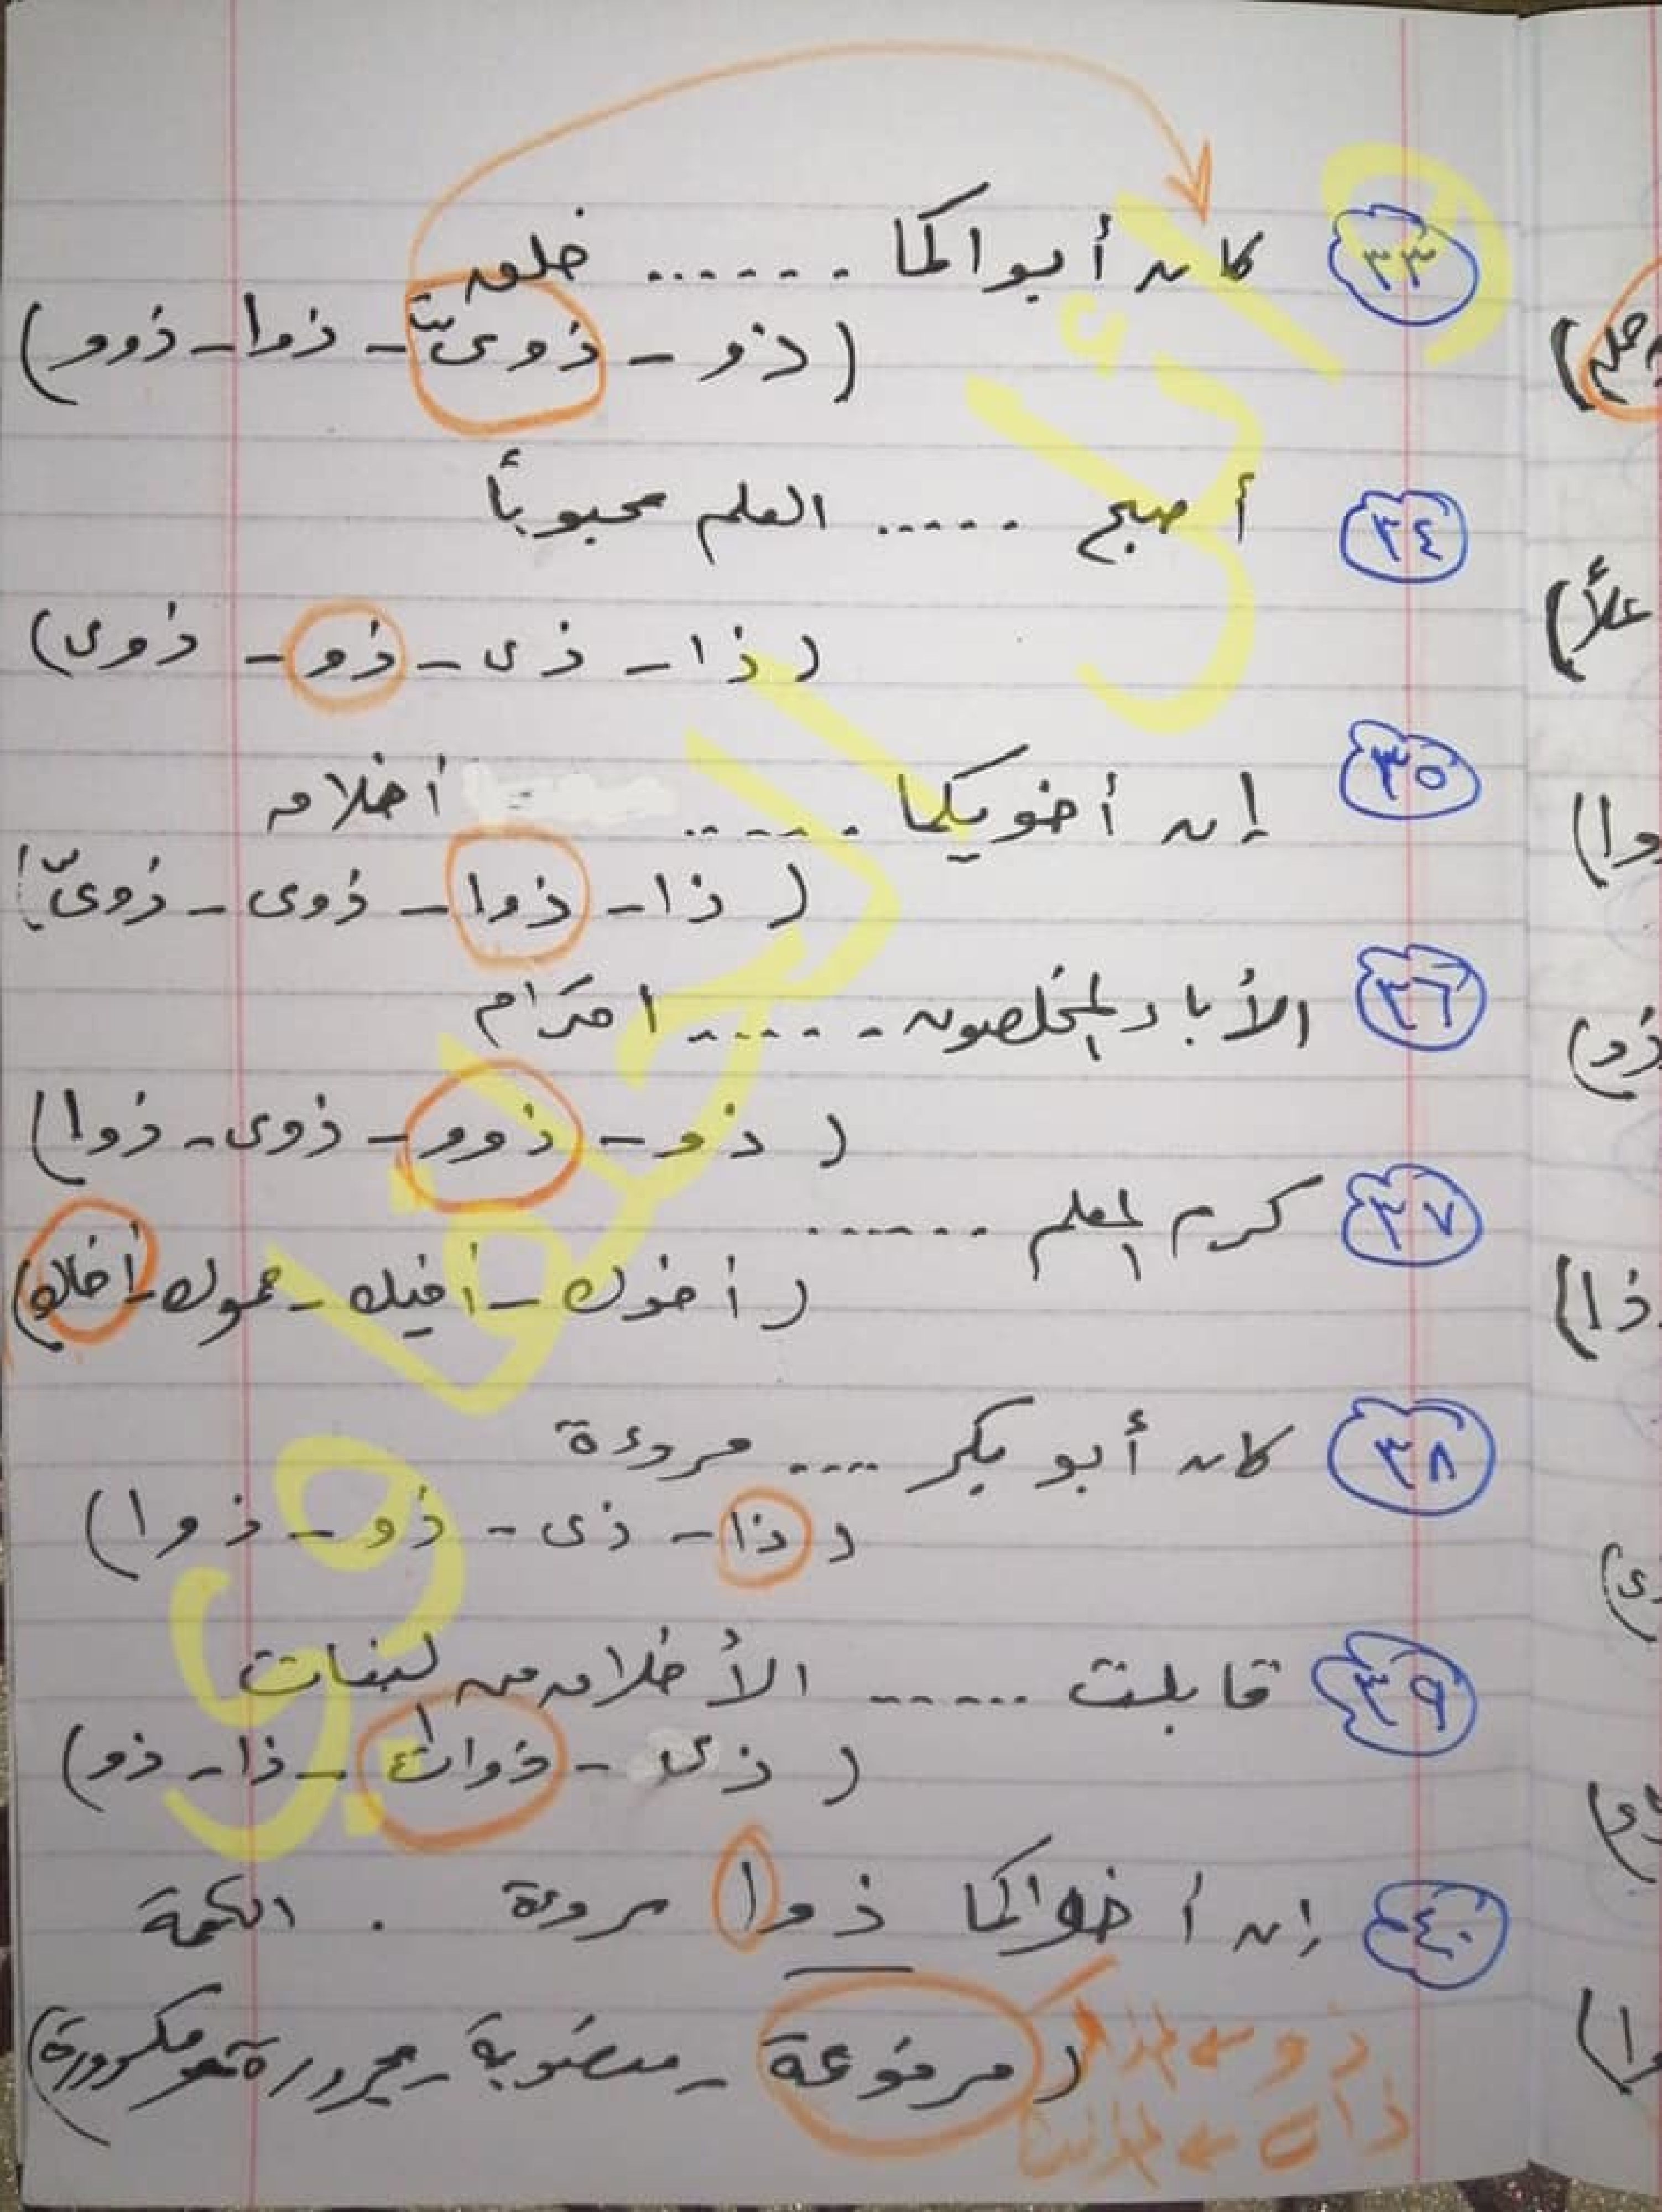 ٣٣ كان أبواكما ...... خلق
(ذو - ذوىْ - ذوا - ذوو)
٣٤ أصبح ..... العلم محبوباً
(ذا - ذى - ذو - ذوى)
٣٥ إن أخويكما ...... أخلاق
(ذا - ذوا - ذوى - ذوىّ)
٣٦ الأباء المخلصون ..... احترام
(ذو - ذوو - ذوى - ذوا)
٣٧ كرم المعلم ......
(أخوك - أخيك - حموك - أخاك)
٣٨ كان أبو بكر .... مروءة
(ذا - ذى - ذو - ذوا)
٣٩ قابلت ...... الأخلاق من البنات
(ذى - ذوات - ذا - ذو)
٤٠ إن أخواكما ذوا مروءة . الكلمة
(مرفوعة - منصوبة - مجرورة - مكسورة)
ذو ← المذكر
ذات ← المؤنث
وائل الحلفاوى